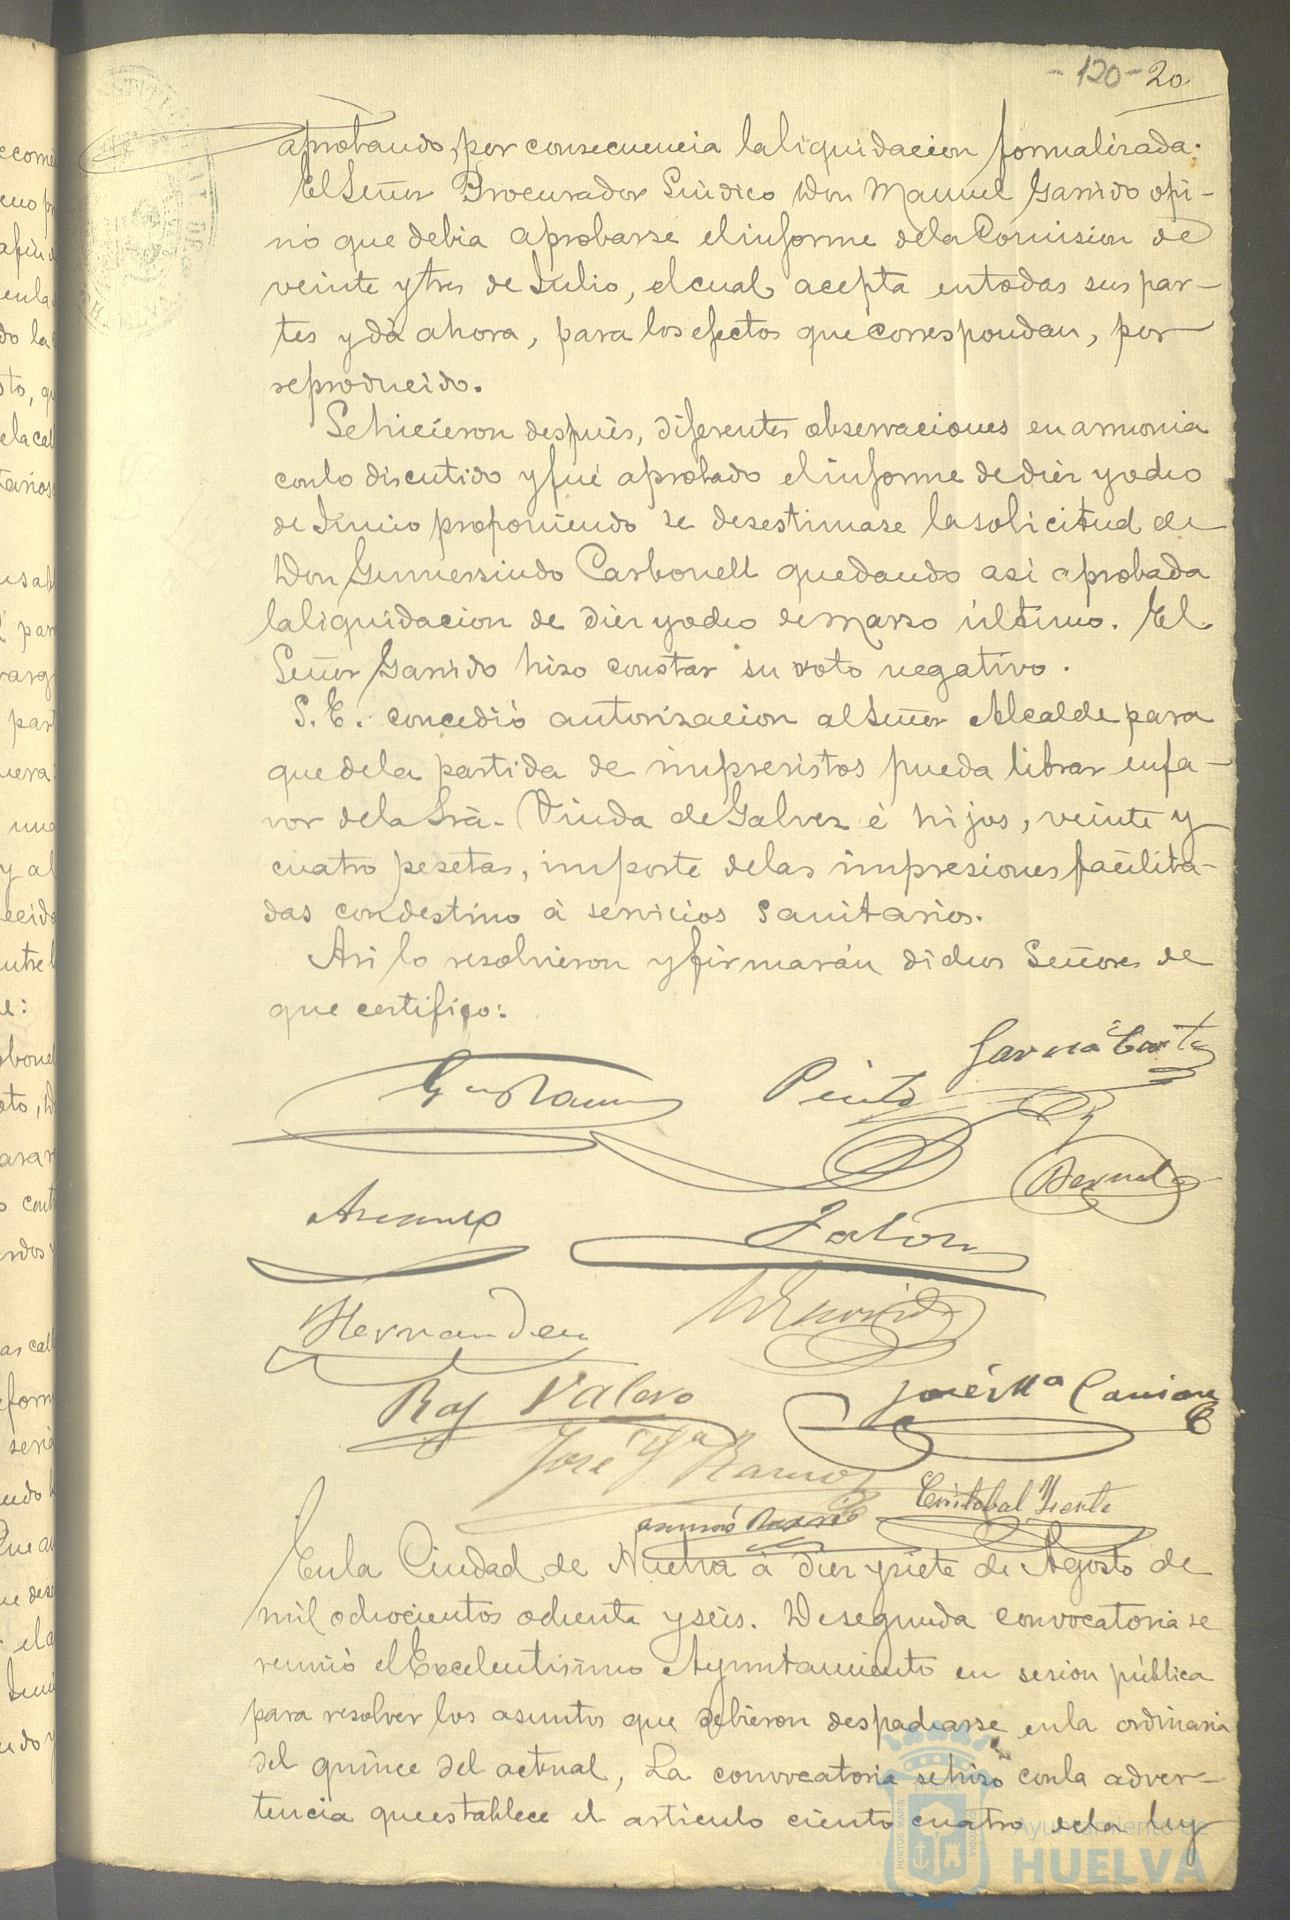 - 120 - 20
aprobando, por consecuencia la liquidacion formalizada.
El Señor Procurador Sindico Don Manuel Garrido opi-
nó que debia aprobarse el informe de la Comision de
veinte y tres de Julio, el cual acepta en todas sus par-
tes y dá ahora, para los efectos que correspondan, por
reproducido.
Se hicieron despues, diferentes observaciones en armonia
con lo discutido y fué aprobado el informe de diez y ocho
de Junio proponiendo se desestimase la solicitud de
Don Gumersindo Carbonell quedando asi aprobada
la liquidacion de diez y ocho de Marzo último. El
Señor Garrido hizo constar su voto negativo.
S. E. concedió autorizacion al Señor Alcalde para
que de la partida de imprevistos pueda librar en fa-
vor de la Sra. Viuda de Galvez é hijos, veinte y
cuatro pesetas, importe de las impresiones facilita-
das con destino á servicios sanitarios.
Asi lo resolvieron y firmarán dichos Señores de
que certifico:
Garcia Cortes
Pinto
Bernal
Jalon
Hernandez
Raf Valero
José Mª
José Mª Ramos
Cristobal
En la Ciudad de Huelva á diez y siete de Agosto de
mil ochocientos ochenta y seis. De segunda convocatoria se
reunió el Excelentisimo Ayuntamiento en sesion pública
para resolver los asuntos que debieron despacharse en la ordinaria
del quince del actual, La convocatoria se hizo con la adver-
tencia que establece el articulo ciento cuatro de la ley
Ayuntamiento de
HUELVA